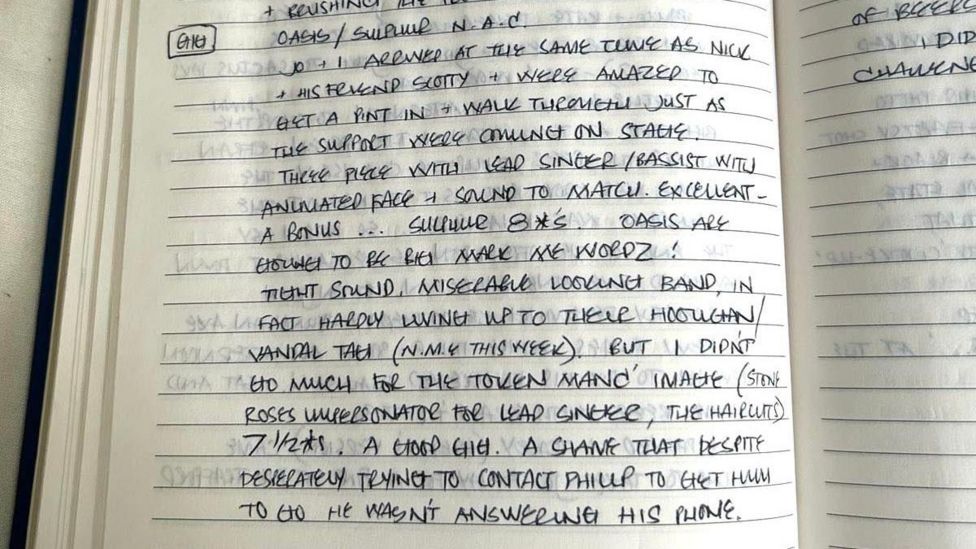 + BRUSHING THE
GIG OASIS/ SULPHUR N.A.C
JO + I ARRIVED AT THE SAME TIME AS NICK
+ HIS FRIEND SCOTTY + WERE AMAZED TO
GET A PINT IN + WALK THROUGH JUST AS
THE SUPPORT WERE COMING ON STAGE.
THREE PIECE WITH LEAD SINGER/BASSIST WITH
ANIMATED FACE + SOUND TO MATCH. EXCELLENT –
A BONUS. SULPHUR 8*'S. OASIS ARE
GOING TO BE BIG MARK ME WORDZ!
TIGHT SOUND, MISERABLE LOOKING BAND, IN
FACT HARDLY LIVING UP TO THEIR HOOLIGAN/
VANDAL TAG (N.M.E THIS WEEK). BUT I DIDN'T
GO MUCH FOR THE TOKEN 'MANC' IMAGE (STONE
ROSES IMPERSONATOR FOR LEAD SINGER, THE HAIRCUTS)
7 1/2*s. A GOOD GIG. A SHAME THAT DESPITE
DESPERATELY TRYING TO CONTACT PHILIP TO GET HIM
TO GO HE WASN'T ANSWERING HIS PHONE.
OF BEERS
I DID